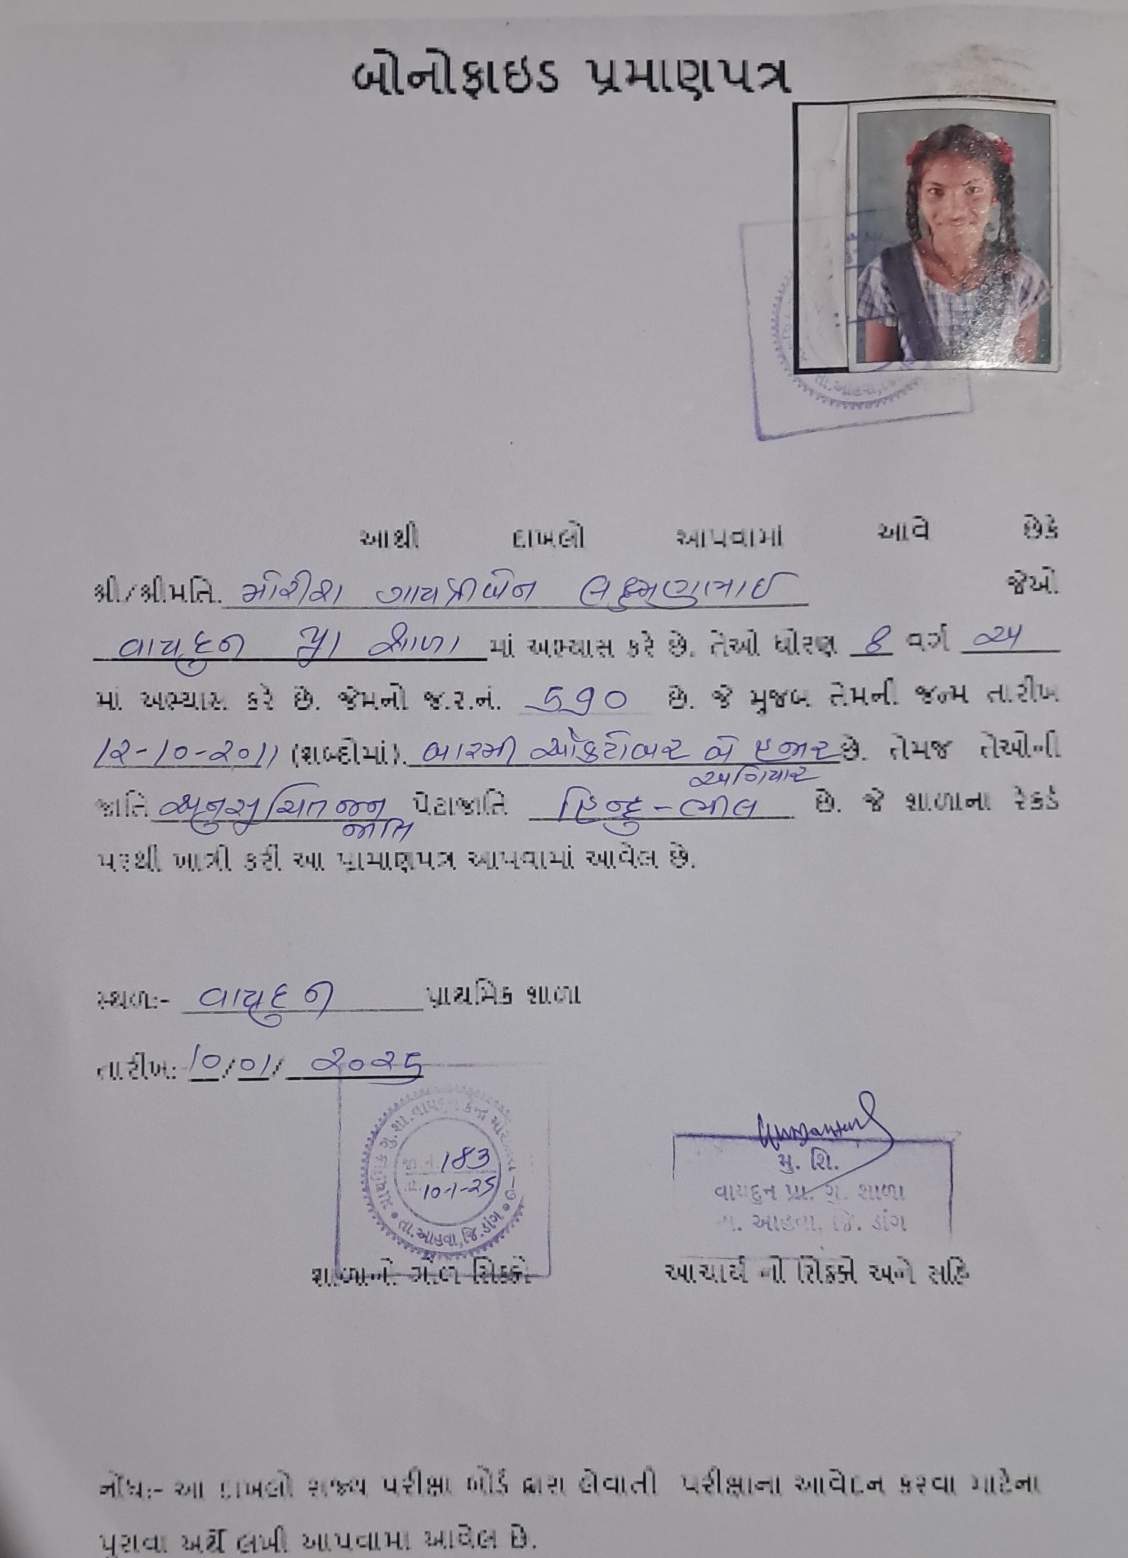 બોનોફાઇડ પ્રમાણપત્ર
આથી દાખલો આપવામાં આવે છેકે
શ્રી/શ્રીમતિ. મોરીશા ગાયત્રીબેન લક્ષ્મણભાઈ જેઓ
વાયદુન પ્રા શાળા માં અભ્યાસ કરે છે. તેઓ ધોરણ 8 વર્ગ અ
માં અભ્યાસ કરે છે. જેમનો જ.ર.નં. 590 છે. જે મુજબ તેમની જન્મ તારીખ
12-10-2011 (શબ્દોમાં). બારમી ઓક્ટોબર બે હજાર છે. તેમજ તેઓની
અગિયાર
જાતિ અનુસુચિત જન પેટાજાતિ હિન્દુ - ભીલ છે. જે શાળાના રેકર્ડ
જાતિ
પરથી ખાત્રી કરી આ પ્રામાણપત્ર આપવામાં આવેલ છે.
સ્થળ:- વાયદુન પ્રાથમિક શાળા
તારીખ: 10/01/ 2025
183
10-1-25
તા. આહવા, જિ. ડાંગ
મુ. શિ.
વાયદુન પ્રા. શાળા
તા. આહવા, જિ. ડાંગ
શાળાનો ગોળ સિક્કો
આચાર્ય નો સિક્કો અને સહિ
નોંધ:- આ દાખલો રાજ્ય પરીક્ષા બોર્ડ દ્વારા લેવાતી પરીક્ષાના આવેદન કરવા માટેના
પુરાવા અર્થે લખી આપવામા આવેલ છે.